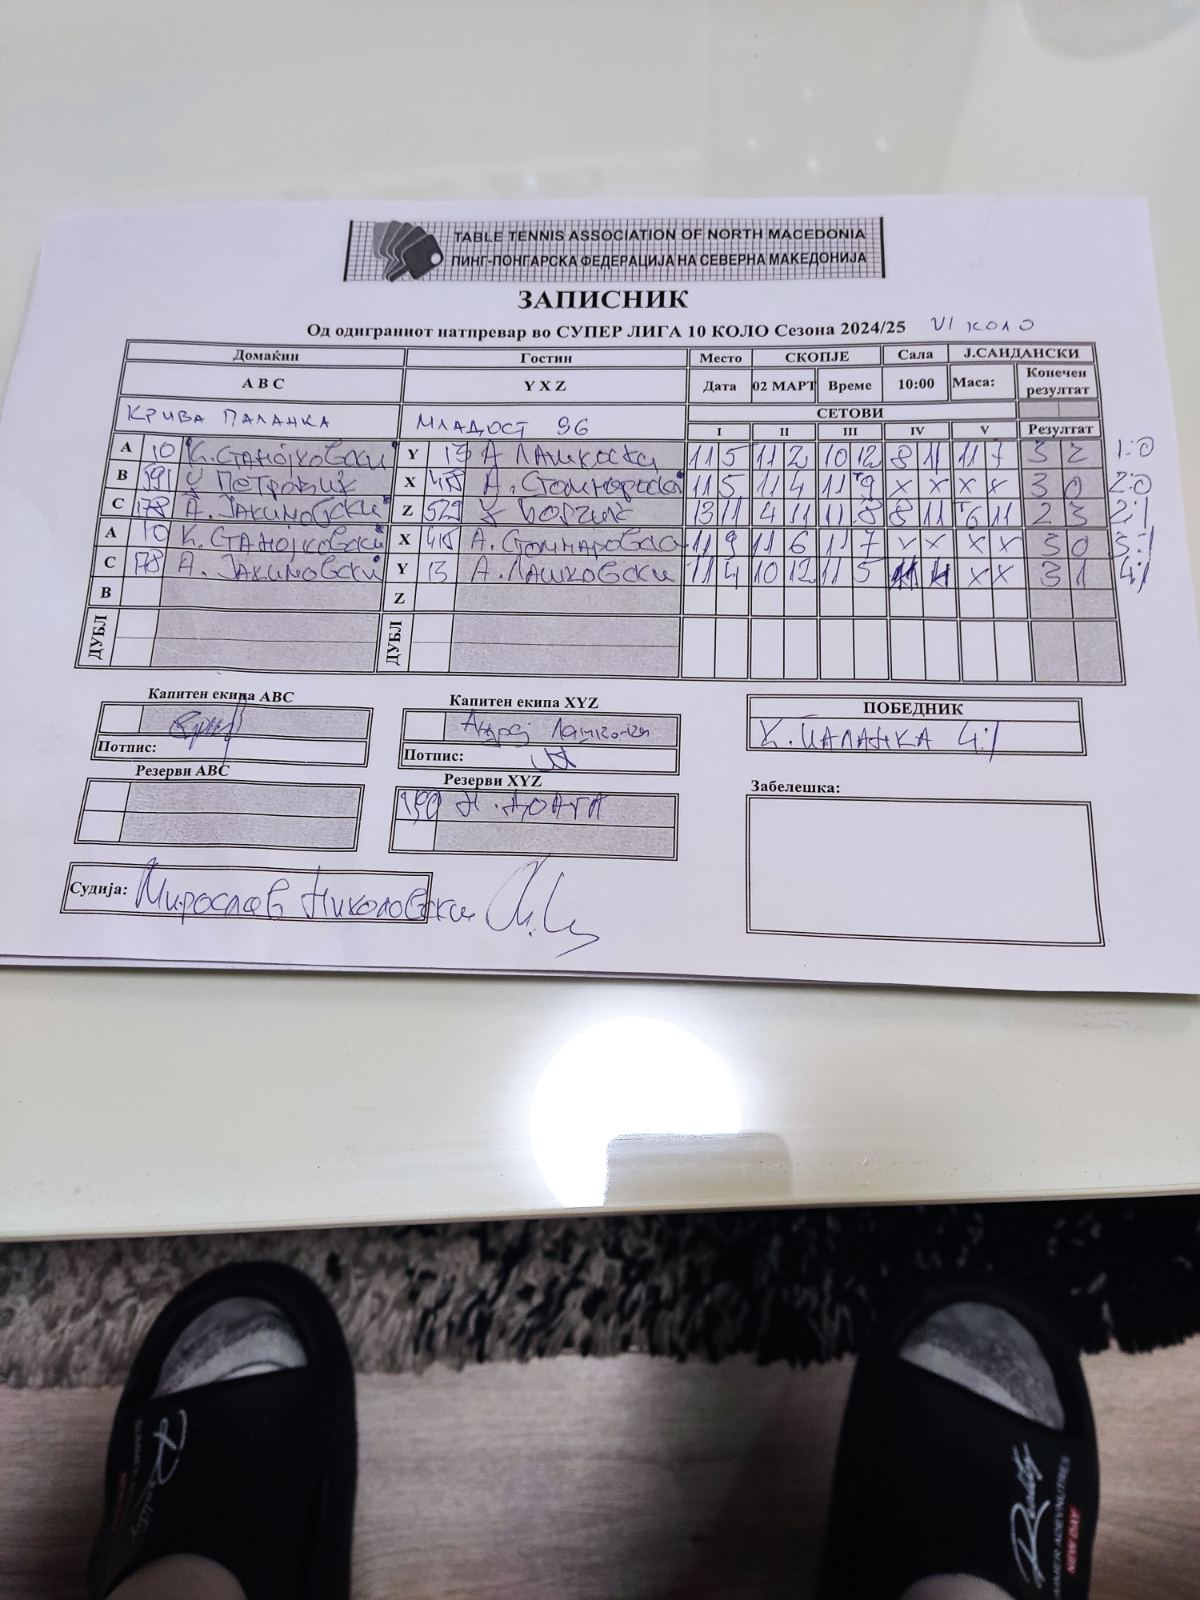 TABLE TENNIS ASSOCIATION OF NORTH MACEDONIA
ПИНГ-ПОНГАРСКА ФЕДЕРАЦИЈА НА СЕВЕРНА МАКЕДОНИЈА
ЗАПИСНИК
Од одиграниот натпревар во СУПЕР ЛИГА 10 КОЛО Сезона 2024/25 VI КОЛО
Домаќин Гостин Место СКОПЈЕ Сала Ј.САНДАНСКИ
A B C Y X Z Дата 02 МАРТ Време 10:00 Маса: Конечен резултат
КРИВА ПАЛАНКА МЛАДОСТ 96 СЕТОВИ
I II III IV V Резултат
A 10 К. СТАНОЈКОВСКИ Y 13 А ЛАШКОСКИ 11 5 11 2 10 12 8 11 11 7 3 2 1:0
B 591 ПЕТРОВИЌ X 415 А. 11 5 11 4 11 9 X X X X 3 0 2:0
C 178 А. ЈАКИМОВСКИ Z 529 13 11 4 11 11 8 8 11 6 11 2 3 2:1
A 10 К. СТАНОЈКОВСКИ X 415 А. 11 9 11 6 11 7 X X X X 3 0 3:1
C 178 А. ЈАКИМОВСКИ Y 13 А. ЛАШКОВСКИ 11 4 10 12 11 5 11 4 X X 3 1 4:1
B Z
ДУБЛ ДУБЛ
Капитен екипа ABC Капитен екипа XYZ ПОБЕДНИК
Андреј Лашкоски К. ПАЛАНКА 4:1
Потпис: Потпис:
Резерви ABC Резерви XYZ Забелешка:
190 Н. ДОАГА
Судија: Мирослав Николовски
Reality
SUMMER ADEVNUTRES
NEW DAY